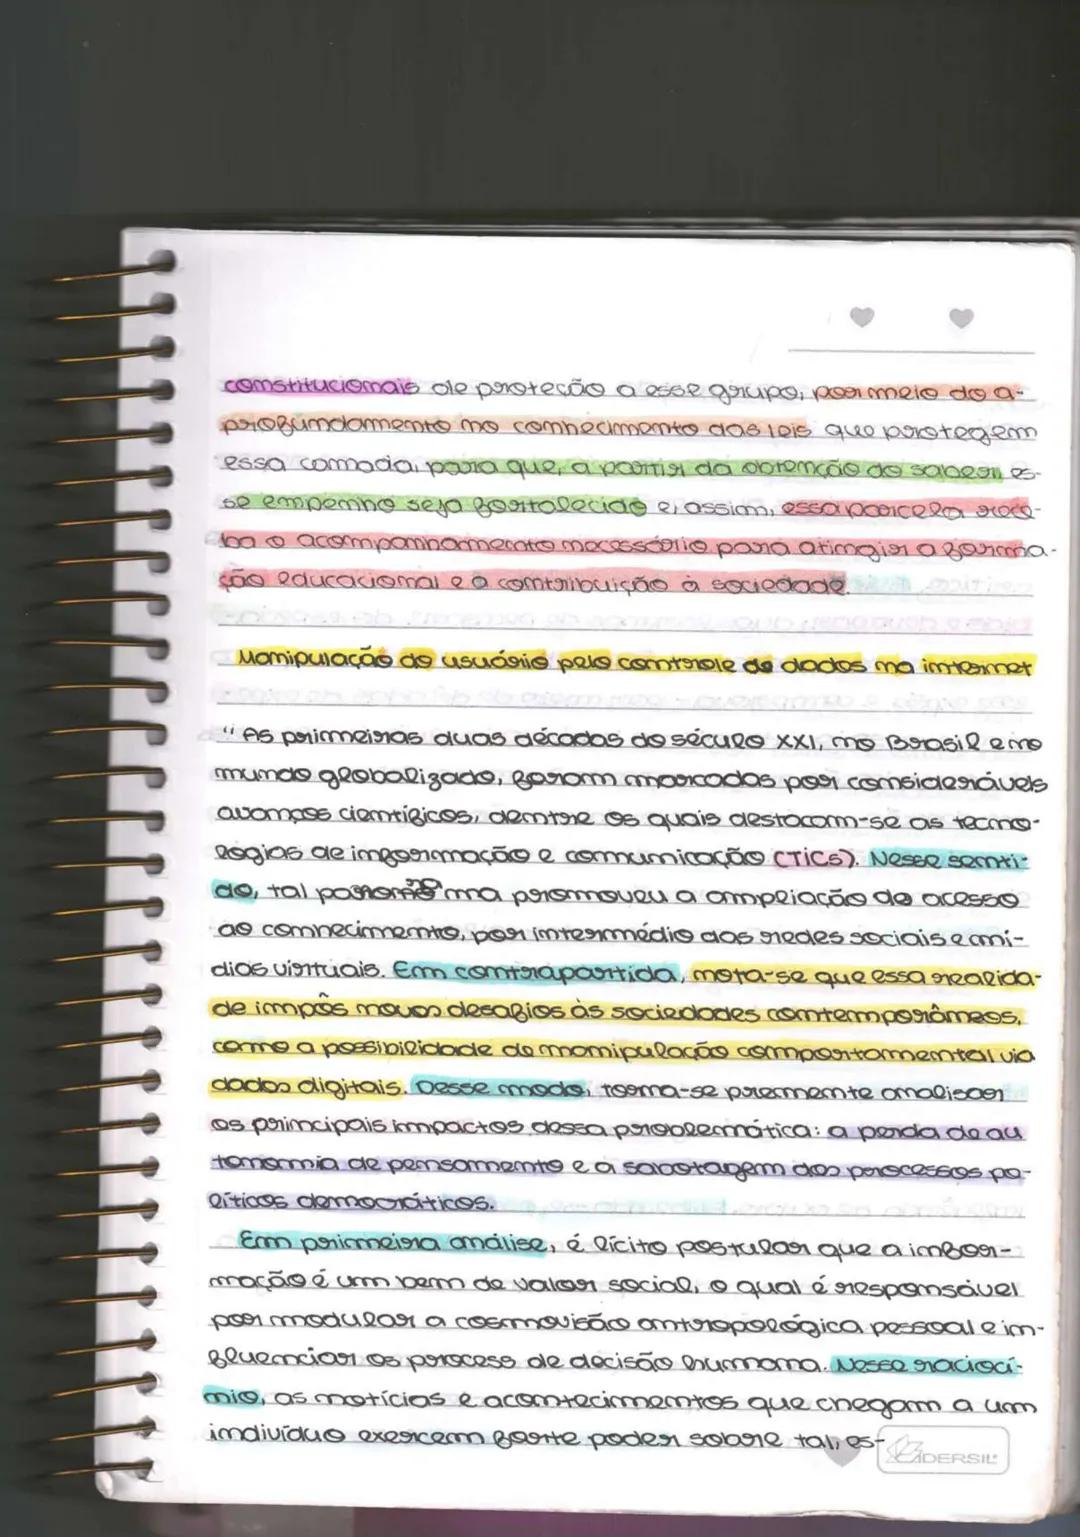 constitucionais de proteção a esse grupo, por meio do a-
profundamento no conhecimento das leis que protegem
essa camada, para que, a partir da obtenção do saber, es-
se empenho seja fortalecido e, assim, essa parcela rece-
ba o acompanhamento necessário para atingir a forma-
ção educacional e a contribuição à sociedade.
Manipulação do usuário pelo controle de dados na internet
" As primeiras duas décadas do século XXI, no Brasil e no
mundo globalizado, foram marcadas por consideráveis
avanços científicos, dentre os quais destacam-se as tecno-
logias de informação e comunicação (TICs). Nesse senti-
do, tal panorama promoveu a ampliação do acesso
ao conhecimento, por intermédio das redes sociais e mí-
dias virtuais. Em contrapartida, nota-se que essa realida-
de impôs novos desafios às sociedades contemporâneas,
como a possibilidade de manipulação comportamental via
dados digitais. Desse modo, torna-se premente analisar
os principais impactos dessa problemática: a perda de au
tonomia de pensamento e a sabotagem dos processos po-
líticos democráticos.
Em primeira análise, é lícito postular que a infor-
mação é um bem de valor social, o qual é responsável
por modular a cosmovisão antropológica pessoal e in-
fluenciar os process de decisão humana. Nesse raciocí-
nio, as notícias e acontecimentos que chegam a um
indivíduo exercem forte poder sobre tal, es-
LIDERSIL